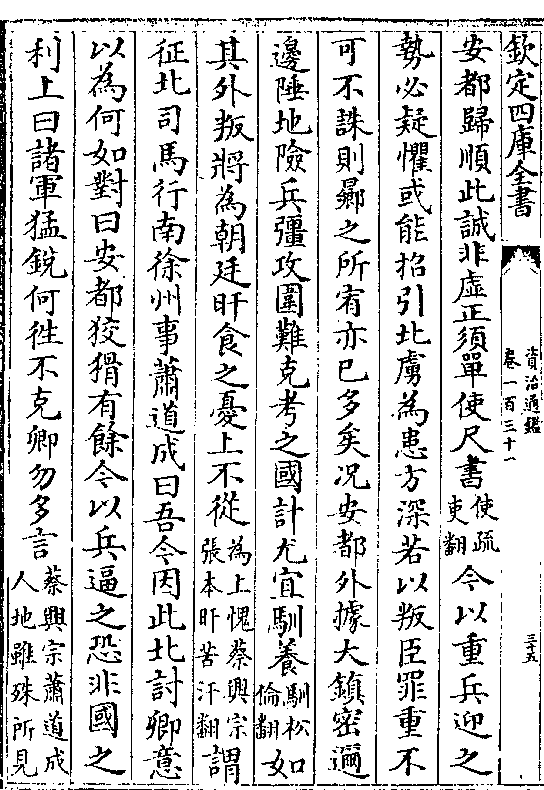 欽定四庫全書
資治通鑑
卷一百三十一
三十五
安都歸順此誠非虛正須單使尺書使疏吏翻今以重兵迎之
勢必疑懼或能招引北虜為患方深若以叛臣罪重不
可不誅則曏之所宥亦已多矣况安都外據大鎮密邇
邊陲地險兵彊攻圍難克考之國計尤宜馴養馴松倫翻如
其外叛將為朝廷旰食之憂上不從為上愧蔡興宗張本旰苦汗翻謂
征北司馬行南徐州事蕭道成曰吾今因此北討卿意
以為何如對曰安都狡猾有餘今以兵逼之恐非國之
利上曰諸軍猛鋭何徃不克卿勿多言蔡興宗蕭道成人地雖殊所見